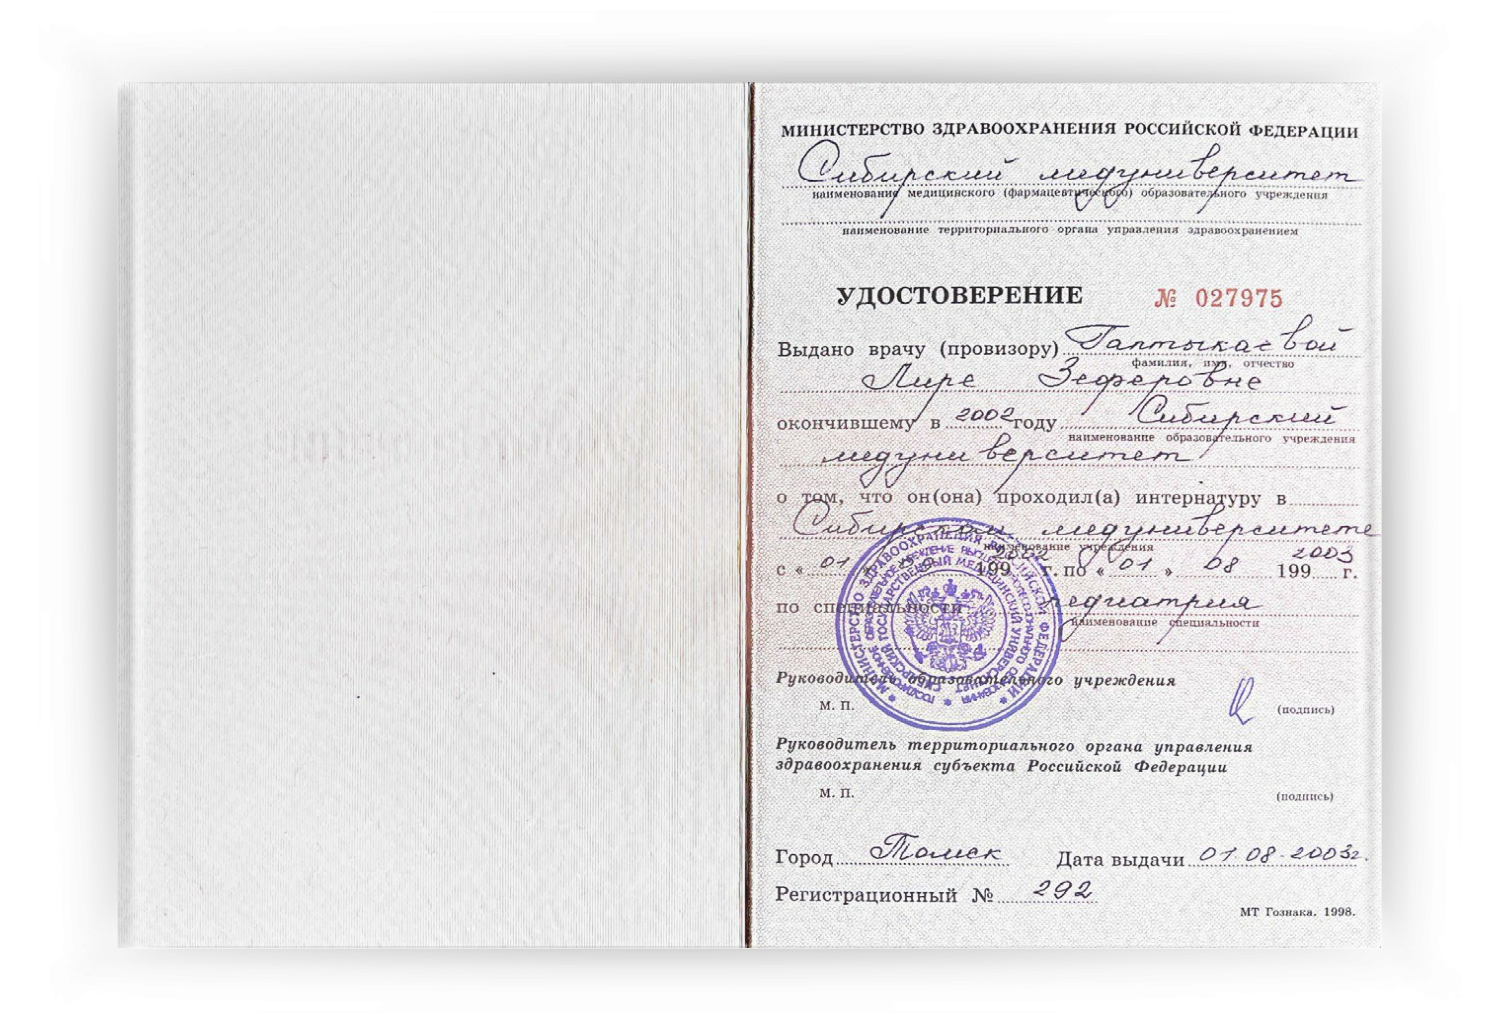 МИНИСТЕРСТВО ЗДРАВООХРАНЕНИЯ РОССИЙСКОЙ ФЕДЕРАЦИИ
Сибирский медуниверситет
наименование медицинского (фармацевтического) образовательного учреждения
наименование территориального органа управления здравоохранением
УДОСТОВЕРЕНИЕ № 027975
Выдано врачу (провизору) Галтыкаевой
фамилия, имя, отчество
Лире Зеферовне
окончившему в 2002 году Сибирский
наименование образовательного учреждения
медуниверситет
о том, что он(она) проходил(а) интернатуру в
Сибирском медуниверситете
наименование учреждения
с « 01 » 09 199 2002 г. по « 01 » 08 199 2003 г.
по специальности педиатрия
наименование специальности
Руководитель образовательного учреждения
М. П. (подпись)
Руководитель территориального органа управления
здравоохранения субъекта Российской Федерации
М. П. (подпись)
Город Томск Дата выдачи 01.08.2003г.
Регистрационный № 292
МТ Гознака. 1998.
МИНИСТЕРСТВО ЗДРАВООХРАНЕНИЯ РОССИЙСКОЙ ФЕДЕРАЦИИ
СИБИРСКИЙ ГОСУДАРСТВЕННЫЙ МЕДИЦИНСКИЙ УНИВЕРСИТЕТ